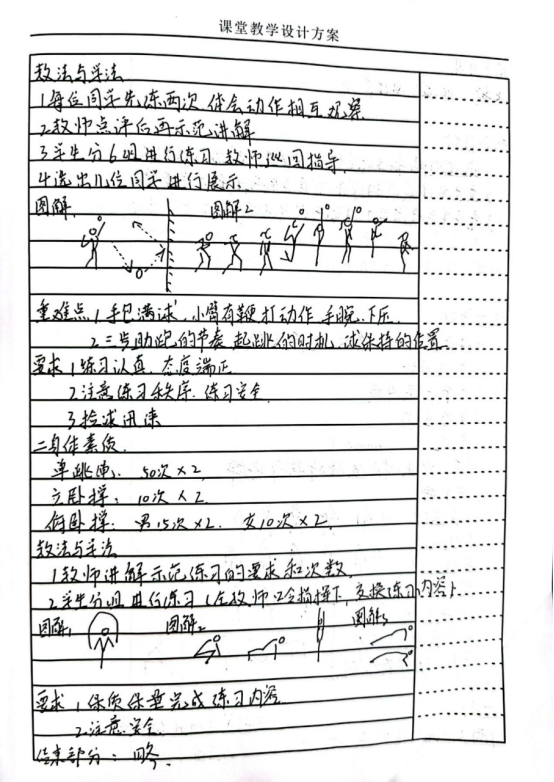 课堂教学设计方案
教法与学法
1 每位同学先练两次 体会动作相互观察
2 教师点评后再示范讲解
3 学生分6组进行练习,教师巡回指导
4 选出几位同学进行展示
图解1 图解2
重难点 1 手包满球,小臂有鞭打动作 手腕下压
2 三步助跑的节奏 起跳的时机,球保持的位置
要求 1 练习认真,态度端正
2 注意练习秩序,练习安全
3 捡球迅速
二身体素质
单跳绳: 50次×2
立卧撑: 10次×2
俯卧撑: 男15次×2. 女10次×2
教法与学法
1 教师讲解示范练习的要求和次数
2 学生分组进行练习(在教师口令指挥下,交换练习内容)
图解1 图解2 图解3
要求 1 保质保量完成练习内容
2 注意安全
结束部分: 略.